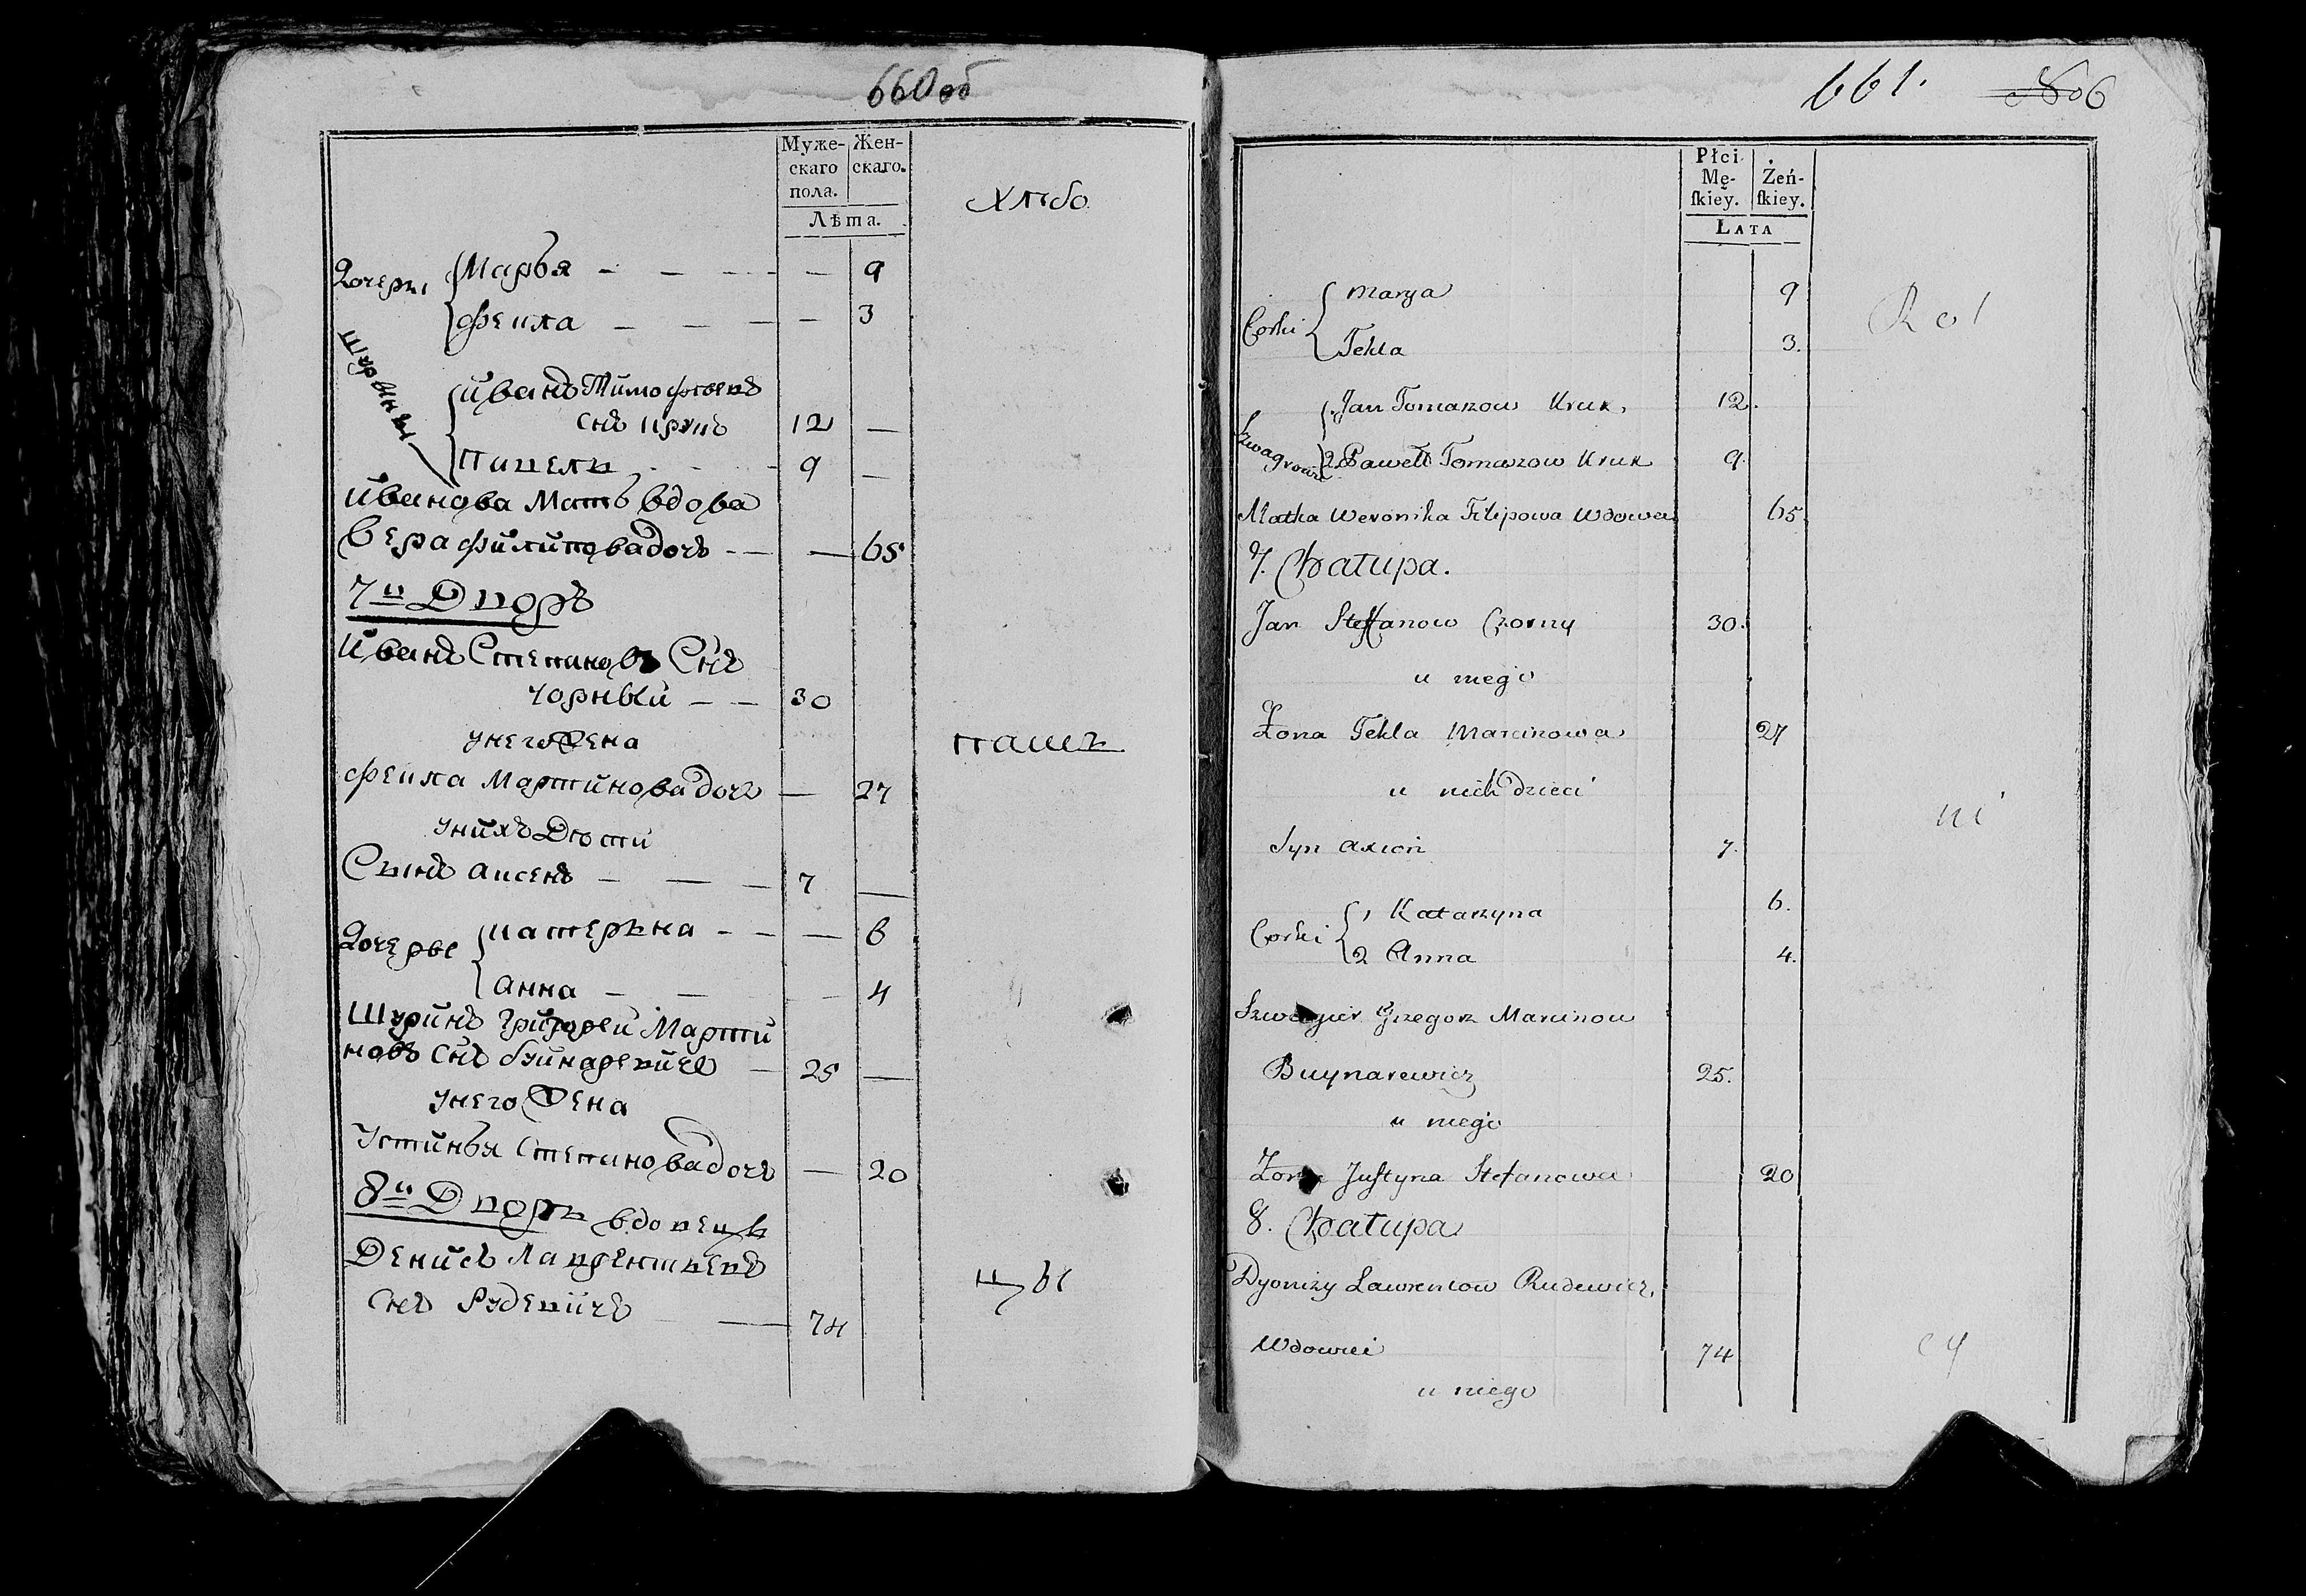 660 об
Муже-
скаго
пола.
Жен-
скаго.
Лѣта.
Хлѣбо
Дочеры
Марья — 9
Фекла — 3
Шурины
Иванъ Тимофѣевъ
снъ Крукъ 12 —
Павелъ 9 —
Иванова Мать вдова
Вера Филипова дочь — 65
7й Дворъ
Иванъ Степановъ Снъ
Чорный — 30
у него Жена
Фекла Мартинова дочь — 27
у нихъ Дѣти
Сынъ Аксенъ — 7 —
Дочерые
Катерына — 6
Анна — 4
Шуринъ Григорей Марти
новъ снъ Буйнаревичь — 25 —
у него Жена
Устинья Степанова дочь — 20
8й Дворъ вдовецъ
Денисъ Лаврентьевъ
Снъ Рудевичъ — 74
пашъ
цы
661. 806
Płci
Mę-
ſkiey.
Żeń-
ſkiey.
LATA
Rol
Corki
Marya 9
Tekla 3.
Szwagrowie
1. Jan Tomaszow Kruk, 12.
2. Pawełł Tomaszow Kruk 9.
Matka Weronika Filipowa Wdowa 65.
7. Chatupa.
Jan Steffanow Czorny 30.
u niego
Żona Tekla Marcinowa 27
u nich dzieci
Syn Axioń 7.
Corki
1 Katarzyna 6.
2 Anna 4.
Szwagier Grzegorz Marcinow
Buynarewicz 25.
u niego
Żona Juſtyna Stefanowa 20
8. Chatupa
Dyonizy Lawrentow Rudewicz,
Wdowiec 74
u niego
ni
cy